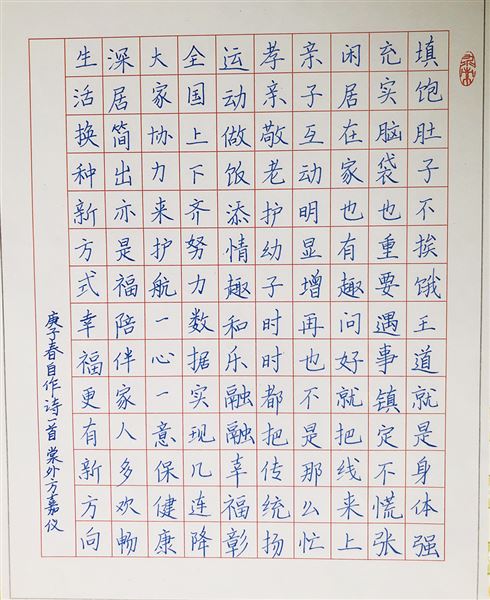 填饱肚子不挨饿王道就是身体强
充实脑袋也重要遇事镇定不慌张
闲居在家也有趣问好就把线来上
亲子互动明显增再也不是那么忙
孝亲敬老护幼子时时都把传统扬
运动做饭添情趣和乐融融幸福彰
全国上下齐努力数据实现几连降
大家协力来护航一心一意保健康
深居简出亦是福陪伴家人多欢畅
生活换种新方式幸福更有新方向
庚子春自作诗一首 棠外方嘉仪